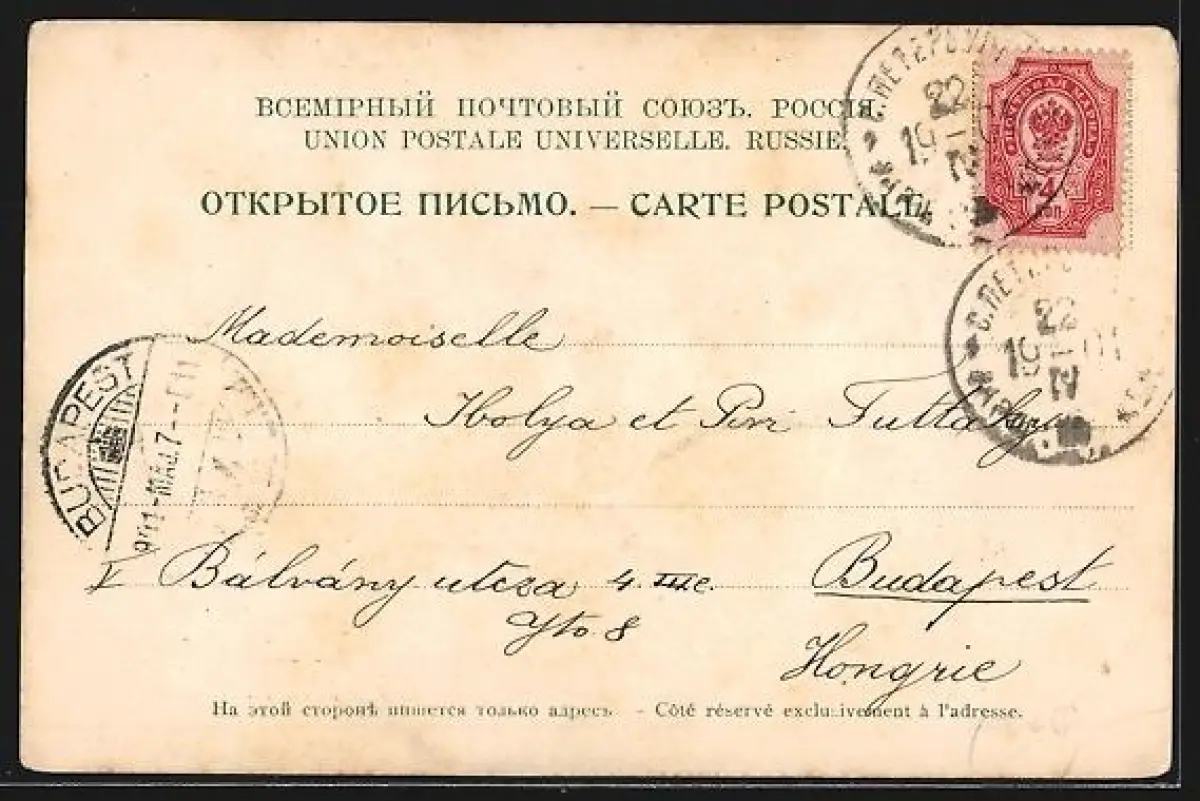 ВСЕМІРНЫЙ ПОЧТОВЫЙ СОЮЗЪ. РОССІЯ.
UNION POSTALE UNIVERSELLE. RUSSIE.
ОТКРЫТОЕ ПИСЬМО. — CARTE POSTALE.
С. ПЕТЕРБУРГ
22
19
IV
4
КОП
С. ПЕТ
22
19 01
IV
Mademoiselle
Ibolya et Piri
BUDAPEST
MÁJ. 7
V Bálvány utcza 4. III. e. Budapest
8
Hongrie
На этой сторонѣ пишется только адресъ - Côté réservé exclusivement à l'adresse.